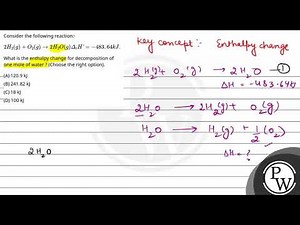 Consider the following reaction:
2H₂(g) + O₂(g) → 2H₂O(g) ΔᵣH° = −483.64 kJ.
What is the enthalpy change for decomposition of
one mole of water? (Choose the right option).
(A) 120.9 kJ
(B) 241.82 kJ
(C) 18 kJ
(D) 100 kJ
2H₂O
Key concept:- Enthalpy change
2H₂(g) + O₂(g) → 2H₂O ①
ΔH = −483.64 kJ
2H₂O → 2H₂(g) + O₂(g)
H₂O → H₂(g) + 1/2 (O₂)
ΔH = ?
PW